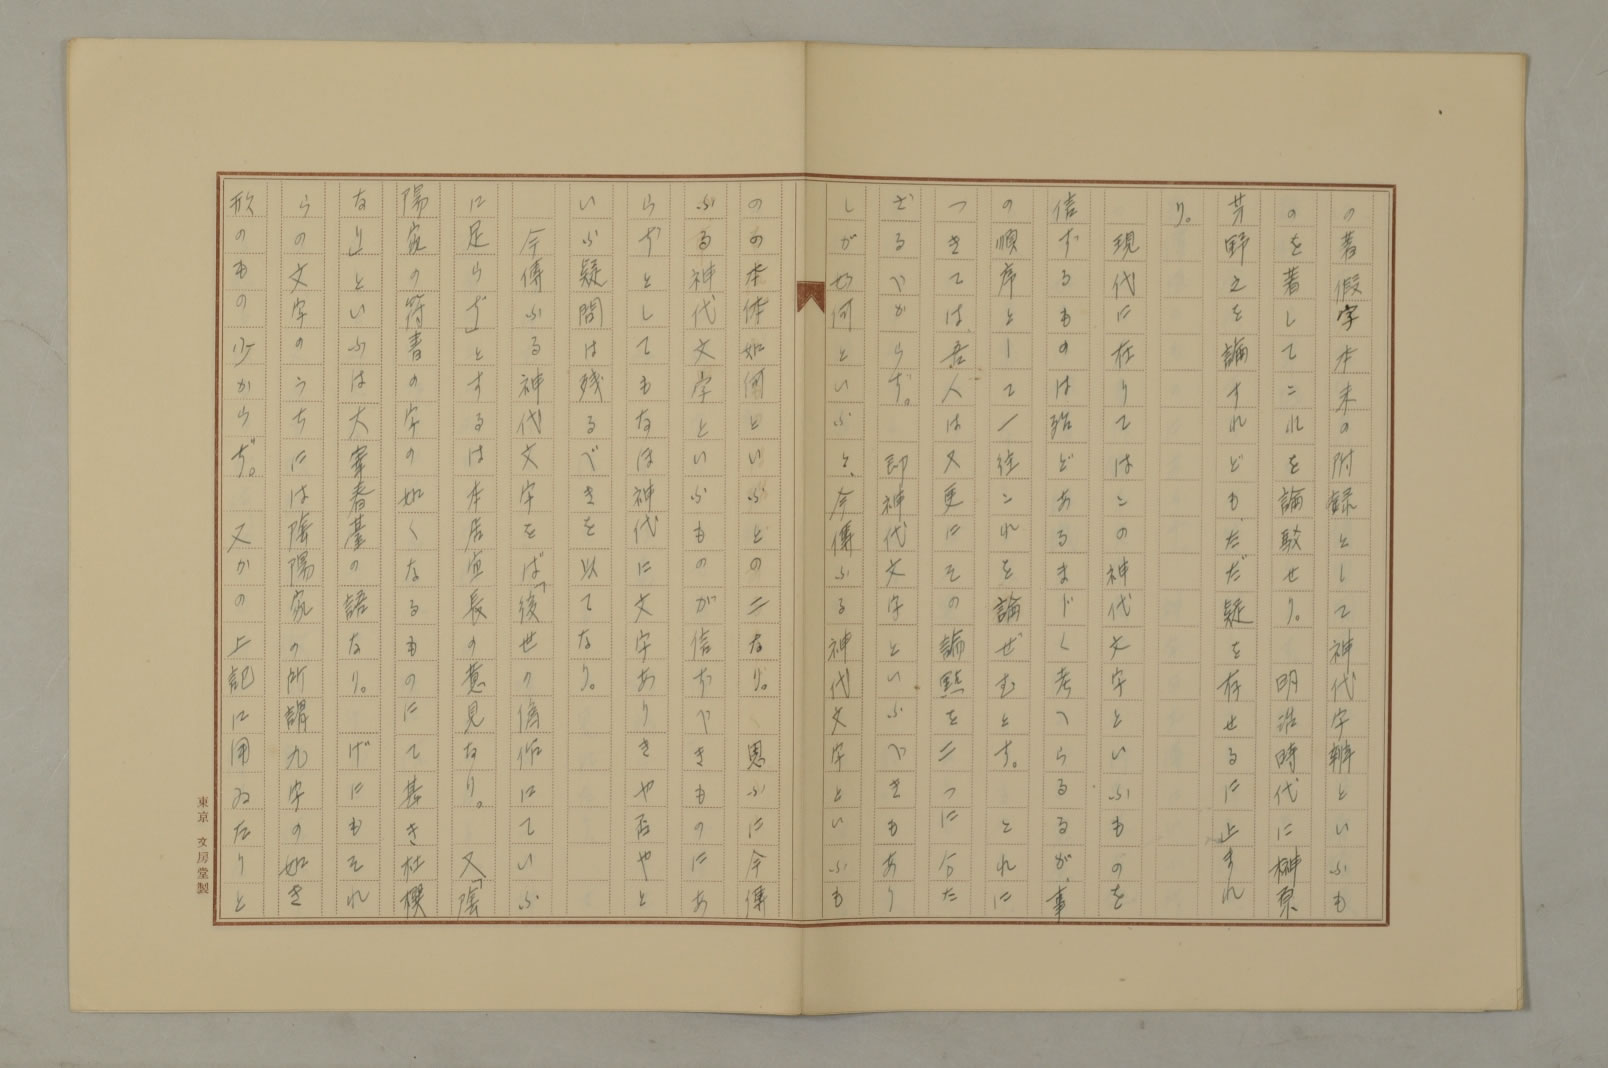 の著假字本末の附録として神代字辨といふも
のを著してこれを論駁せり。明治時代に榊原
芳野之を論すれども、ただ疑を存せるに止まれ
り。
現代に在りてはこの神代文字といふものを
信ずるものは殆どあるまじく考へらるるが、事
の順序として一往これを論ぜむとす。これに
つきては、吾人は又更にその論點を二つに分た
ざるべからず。即神代文字といふべきもあり
しが如何といふと、今傳ふる神代文字といふも
のの本体如何といふとの二なり。思ふに今傳
ふる神代文字といふものが信ずべきものにあ
らずとしてもなほ神代に文字ありきや否やと
いふ疑問は残るべきを以てなり。
今傳ふる神代文字をば「後世の偽作にていふ
に足らず」とするは本居宣長の意見なり。又「陰
陽家の符書の字の如くなるものにて甚き杜撰
なり」といふは太宰春臺の語なり。げにもそれ
らの文字のうちには陰陽家の所謂九字の如き
形のもの少からず。又かの上記に用ゐたりと
東京 文房堂製